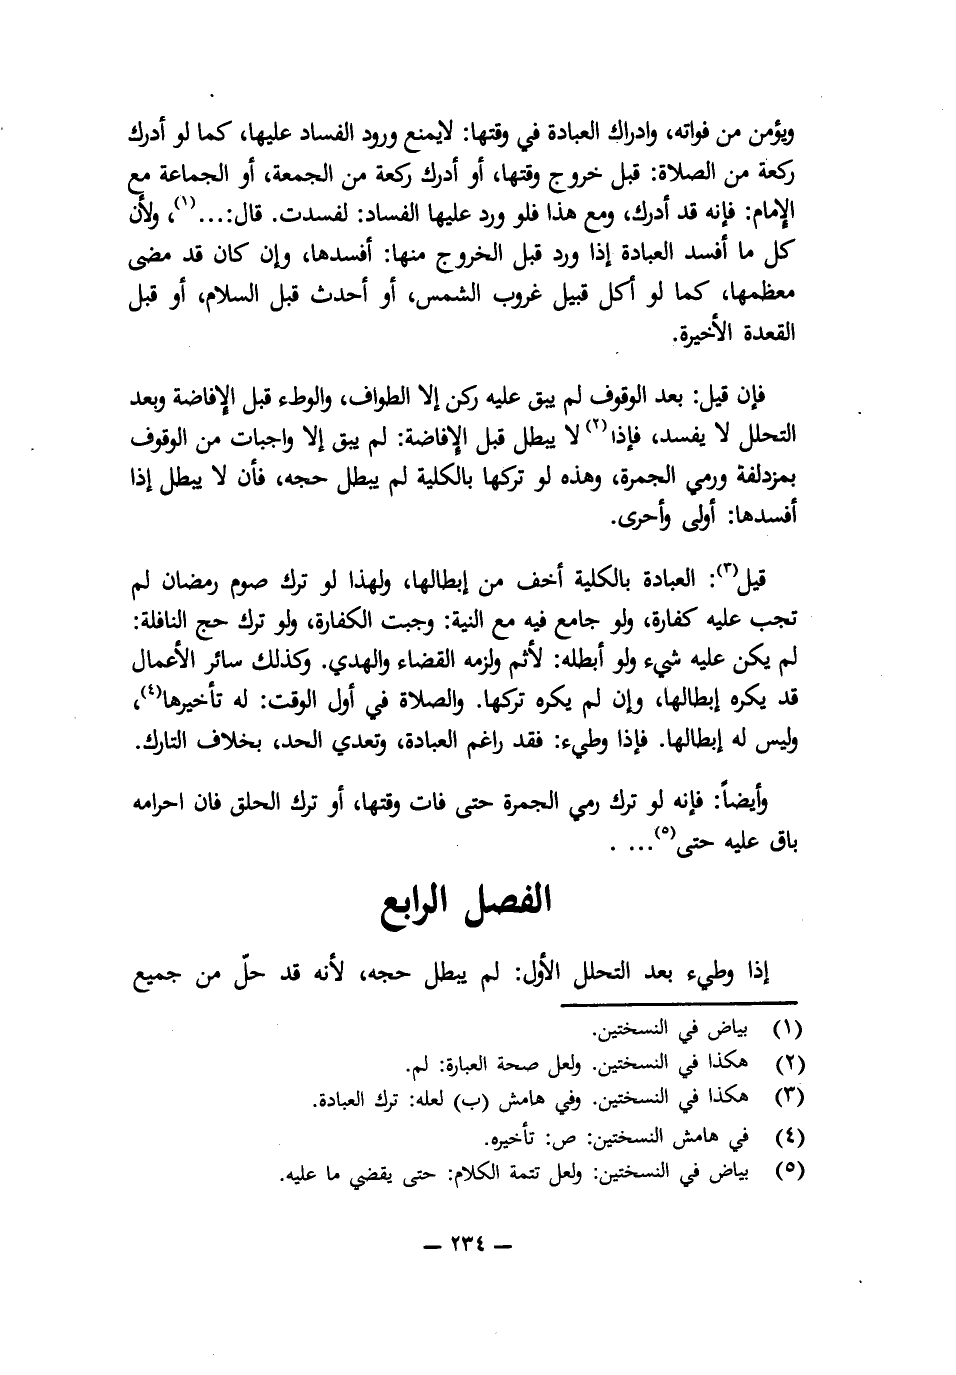 ويؤمن من فواته، وادراك العبادة في وقتها: لايمنع ورود الفساد عليها، كما لو أدرك
ركعة من الصلاة: قبل خروج وقتها، أو أدرك ركعة من الجمعة، أو الجماعة مع
الإمام: فإنه قد أدرك، ومع هذا فلو ورد عليها الفساد: لفسدت. قال:...(١)، ولأن
كل ما أفسد العبادة إذا ورد قبل الخروج منها: أفسدها، وإن كان قد مضى
معظمها، كما لو أكل قبيل غروب الشمس، أو أحدث قبل السلام، أو قبل
القعدة الأخيرة.
فإن قيل: بعد الوقوف لم يبق عليه ركن إلا الطواف، والوطء قبل الإفاضة وبعد
التحلل لا يفسد، فإذا(٢) لا يبطل قبل الإفاضة: لم يبق إلا واجبات من الوقوف
بمزدلفة ورمي الجمرة، وهذه لو تركها بالكلية لم يبطل حجه، فأن لا يبطل إذا
أفسدها: أولى وأحرى.
قيل(٣): العبادة بالكلية أخف من إبطالها، ولهذا لو ترك صوم رمضان لم
تجب عليه كفارة، ولو جامع فيه مع النية: وجبت الكفارة، ولو ترك حج النافلة:
لم يكن عليه شيء ولو أبطله: لأثم ولزمه القضاء والهدي. وكذلك سائر الأعمال
قد يكره إبطالها، وإن لم يكره تركها. والصلاة في أول الوقت: له تأخيرها(٤)،
وليس له إبطالها. فإذا وطيء: فقد راغم العبادة، وتعدي الحد، بخلاف التارك.
وأيضاً: فإنه لو ترك رمي الجمرة حتى فات وقتها، أو ترك الحلق فان احرامه
باق عليه حتى(٥)... .
الفصل الرابع
إذا وطيء بعد التحلل الأول: لم يبطل حجه، لأنه قد حلّ من جميع
(١) بياض في النسختين.
(٢) هكذا في النسختين. ولعل صحة العبارة: لم.
(٣) هكذا في النسختين. وفي هامش (ب) لعله: ترك العبادة.
(٤) في هامش النسختين: ص: تأخيره.
(٥) بياض في النسختين: ولعل تتمة الكلام: حتى يقضي ما عليه.
— ٢٣٤ —